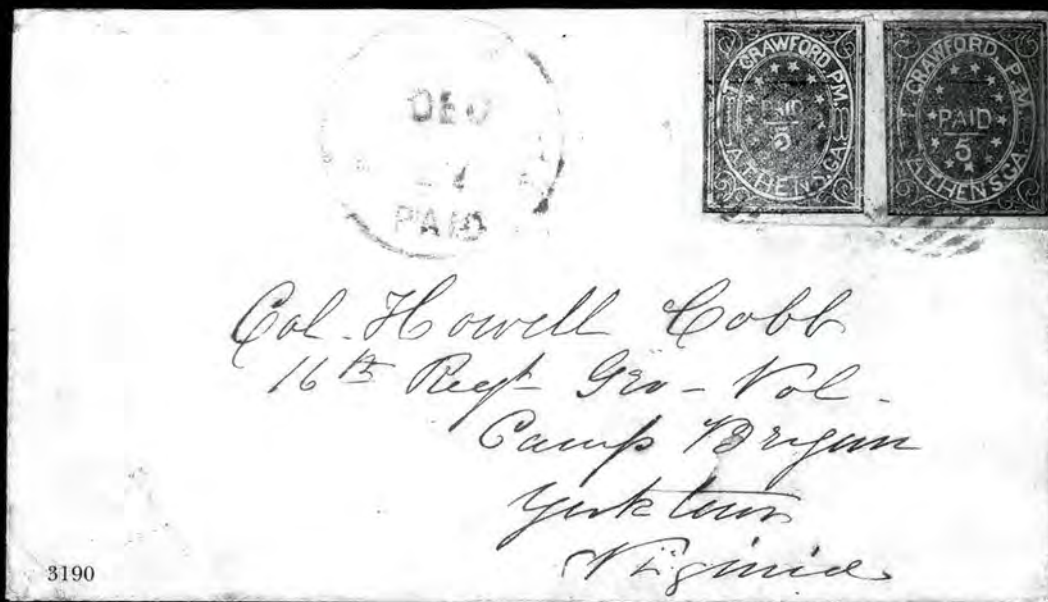 T. CRAWFORD, P.M.
PAID
5
ATHENS, GA.
T. CRAWFORD, P.M.
PAID
5
ATHENS, GA.
DEC
PAID
Col. Howell Cobb
16th Regt Geo - Vol.
Camp Bryan
York town
Virginia
3190